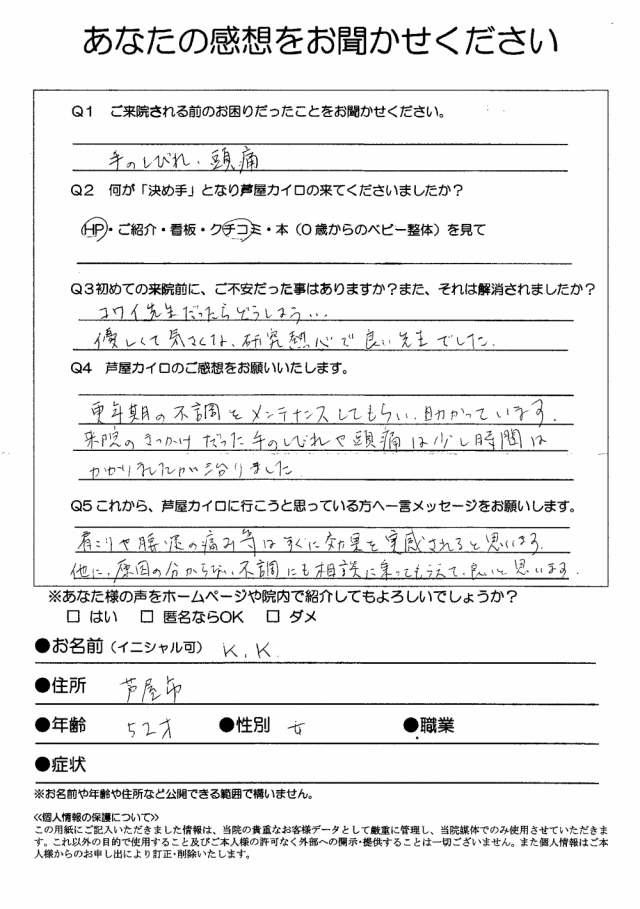 あなたの感想をお聞かせください
Q1 ご来院される前のお困りだったことをお聞かせください。
手のしびれ、頭痛
Q2 何が「決め手」となり芦屋カイロの来てくださいましたか？
HP・ご紹介・看板・クチコミ・本（0歳からのベビー整体）を見て
Q3初めての来院前に、ご不安だった事はありますか？また、それは解消されましたか？
コワイ先生だったらどうしよう…
優しくて気さくな、研究熱心で良い先生でした.
Q4 芦屋カイロのご感想をお願いいたします。
更年期の不調をメンテナンスしてもらい、助かっています.
来院のきっかけだった手のしびれや頭痛は少し時間は
かかりましたが治りました
Q5これから、芦屋カイロに行こうと思っている方へ一言メッセージをお願いします。
肩こりや腰・足の痛み等はすぐに効果を実感されると思います.
他に、原因の分からない不調にも相談に乗ってもらえて、良いと思います.
※あなた様の声をホームページや院内で紹介してもよろしいでしょうか？
□ はい □ 匿名ならOK □ ダメ
●お名前（イニシャル可） K. K.
●住所 芦屋市
●年齢 52才 ●性別 女 ●職業
●症状
※お名前や年齢や住所など公開できる範囲で構いません。
≪個人情報の保護について≫
この用紙にご記入いただきました情報は、当院の貴重なお客様データとして厳重に管理し、当院媒体でのみ使用させていただきま
す。これ以外の目的で使用すること及びご本人様の許可なく外部への開示・提供することは一切ございません。また個人情報はご本
人様からのお申し出により訂正・削除いたします。